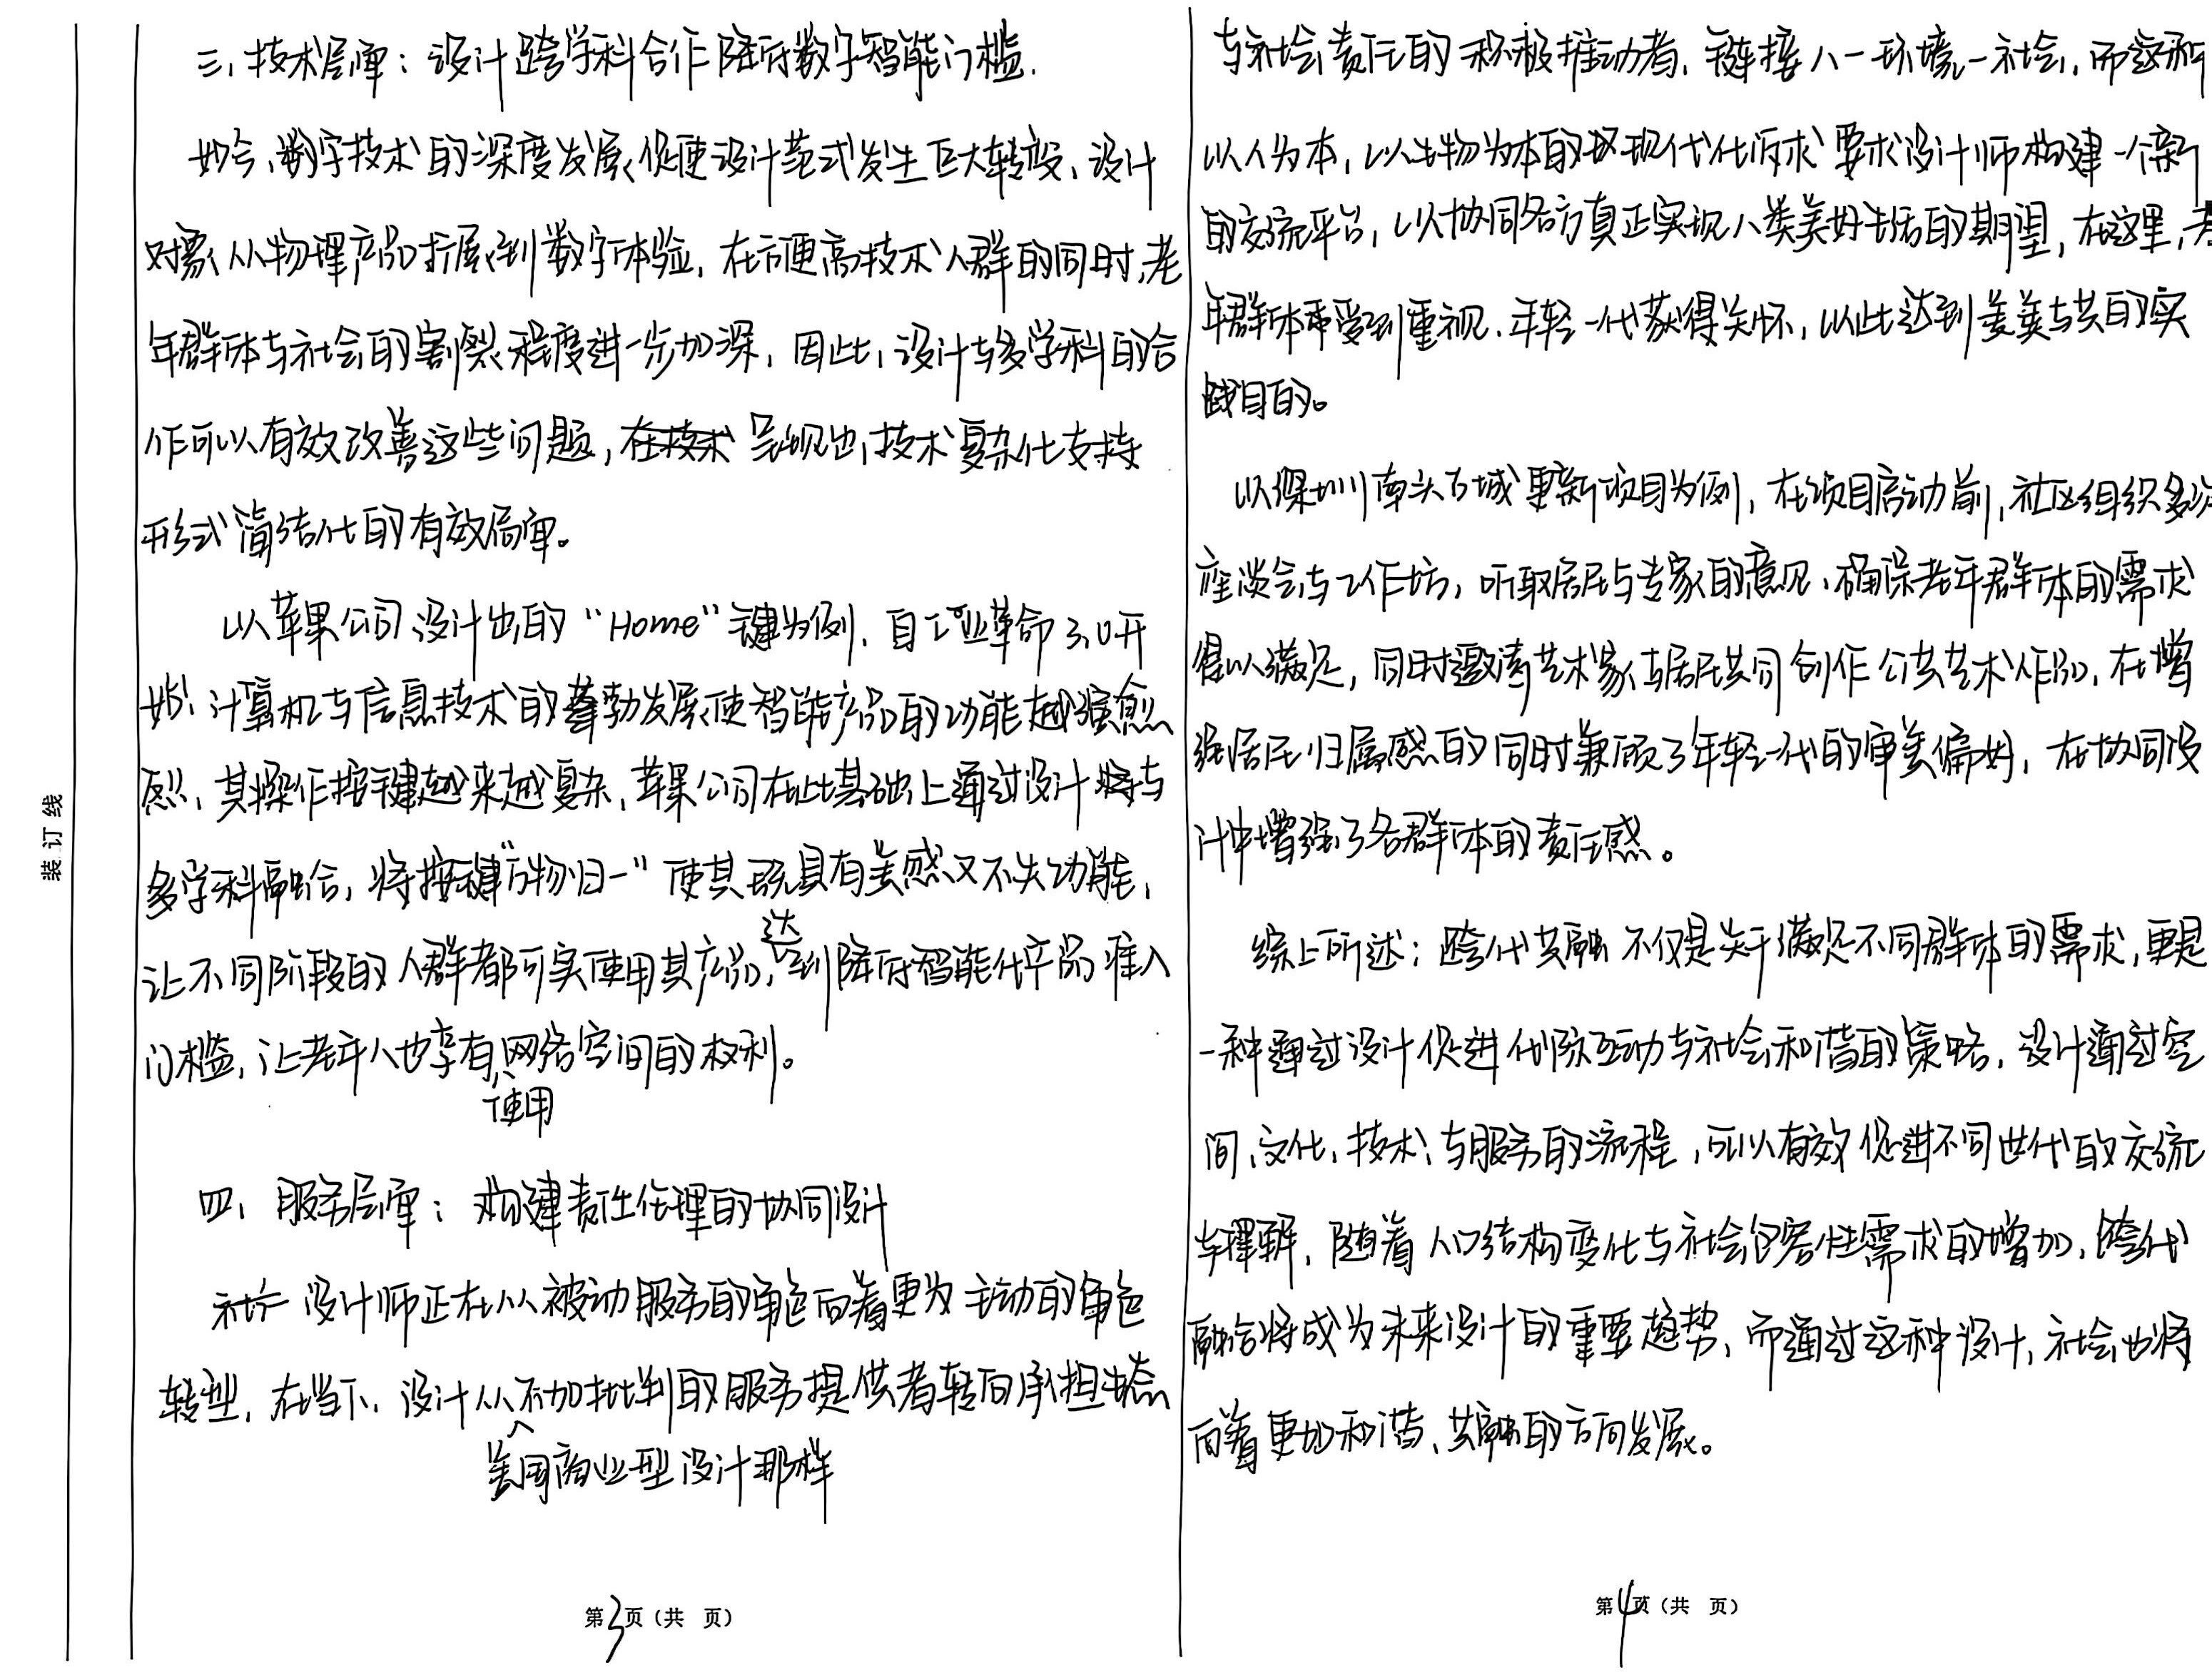 三、技术层面：设计跨学科合作降低数字智能门槛.
如今，数字技术的深度发展促使设计范式发生巨大转变、设计
对象从物理产品扩展到数字体验，在方便高技术人群的同时，老
年群体与社会的割裂程度进一步加深，因此，设计与多学科的合
作可以有效改善这些问题，在技术 呈现出技术复杂化支持
形式简洁化的有效局面。
以苹果公司设计出的“Home”键为例，自工业革命3.0开
始，计算机与信息技术的蓬勃发展使智能产品的功能越强愈
烈，其操作按键越来越复杂，苹果公司在此基础上通过设计将与
多学科融合，将按键“万物归一”使其既具有美感又不失功能，
让不同阶段的人群都可实使用其产品，达到降低智能化产品准入
门槛，让老年人也享有使用网络空间的权利。
四、服务层面：构建责任伦理的协同设计
设计师正在从被动服务的角色向着更为主动的角色
转型，在当下，设计从美国商业型设计那样不加批判的服务提供者转向承担生态
装订线
第3页（共 页）
与社会责任的积极推动者，链接人一环境一社会，而这种
以人为本，以生物为本的现代化诉求要求设计师构建一个新
的交流平台，以协同各方真正实现人类美好生活的期望，在这里，老
年群体受到重视，年轻一代获得关怀，以此达到美美与共的实
践目的。
以深圳南头古城更新项目为例，在项目启动前，社区组织多次
座谈会与工作坊，听取居民与专家的意见，确保老年群体的需求
得以满足，同时邀请艺术家与居民共同创作公共艺术作品，在增
强居民归属感的同时兼顾了年轻一代的审美偏好，在协同设
计中增强了各群体的责任感。
综上所述：跨代共融不仅是关于满足不同群体的需求，更是
一种通过设计促进代际互动与社会和谐的策略，设计通过空
间、文化、技术、与服务的流程，可以有效促进不同世代的交流
与理解，随着人口结构变化与社会包容性需求的增加，跨代
融合将成为未来设计的重要趋势，而通过这种设计，社会也将
向着更加和谐、共融的方向发展。
第4页（共 页）